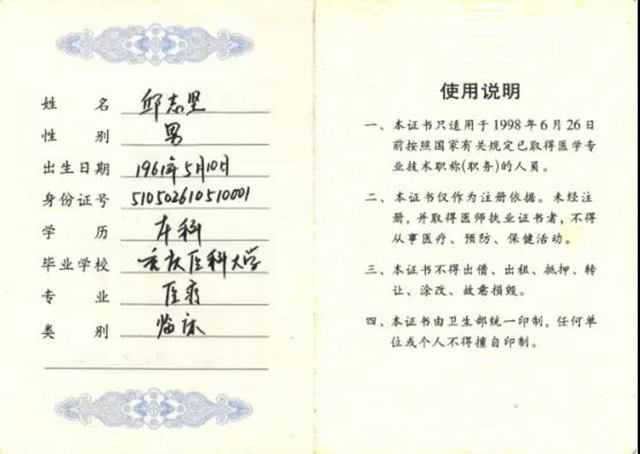 姓名 邱志坚
性别 男
出生日期 1961年5月10日
身份证号 510502610510001
学历 本科
毕业学校 重庆医科大学
专业 医疗
类别 临床
使用说明
一、本证书只适用于1998年6月26日
前按照国家有关规定已取得医学专
业技术职称(职务)的人员。
二、本证书仅作为注册依据。未经注
册,并取得医师执业证书者,不得
从事医疗、预防、保健活动。
三、本证书不得出借、出租、抵押、转
让、涂改、故意损毁。
四、本证书由卫生部统一印制,任何单
位或个人不得擅自印制。